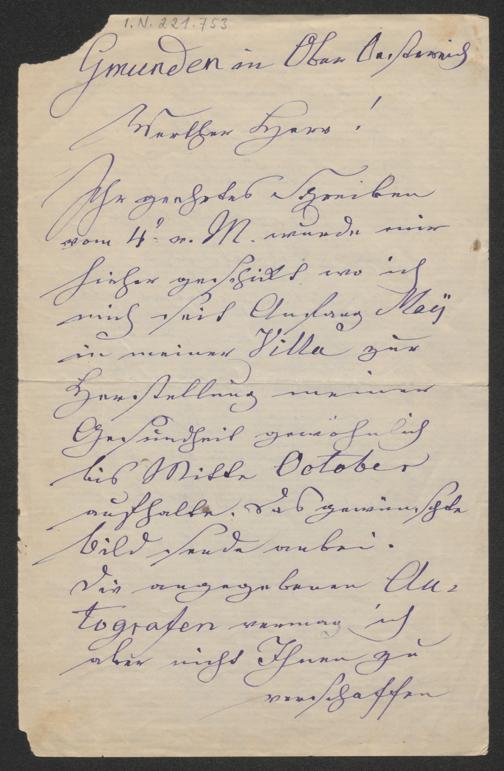 I.N. 221.753
Gmunden in Ober Oesterreich
Werther Herr!
Ihr geehrtes Schreiben
vom 4t. v. M. wurde mir
hieher geschikt wo ich
mich seit Anfang Maÿ
in meiner Villa zur
Herstellung meiner
Gesundheit gewöhnlich
bis Mitte October
aufhalte. Das gewünschte
Bild sende anbei.
Die angegebenen Au-
tografen vermag ich
aber nicht Ihnen zu
verschaffen